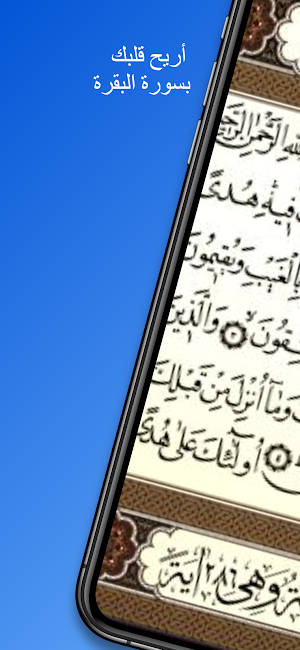 أريح قلبك
بسورة البقرة
ٱللَّهِ ٱلرَّحْمَٰنِ ٱلرَّحِيمِ
فِيهِ هُدًى
بِٱلْغَيْبِ وَيُقِيمُونَ
يُنفِقُونَ ٣ وَٱلَّذِينَ
وَمَآ أُنزِلَ مِن قَبْلِكَ
٤ أُو۟لَٰٓئِكَ عَلَىٰ هُدًى
وَهِيَ ٢٨٦ اٰيَة